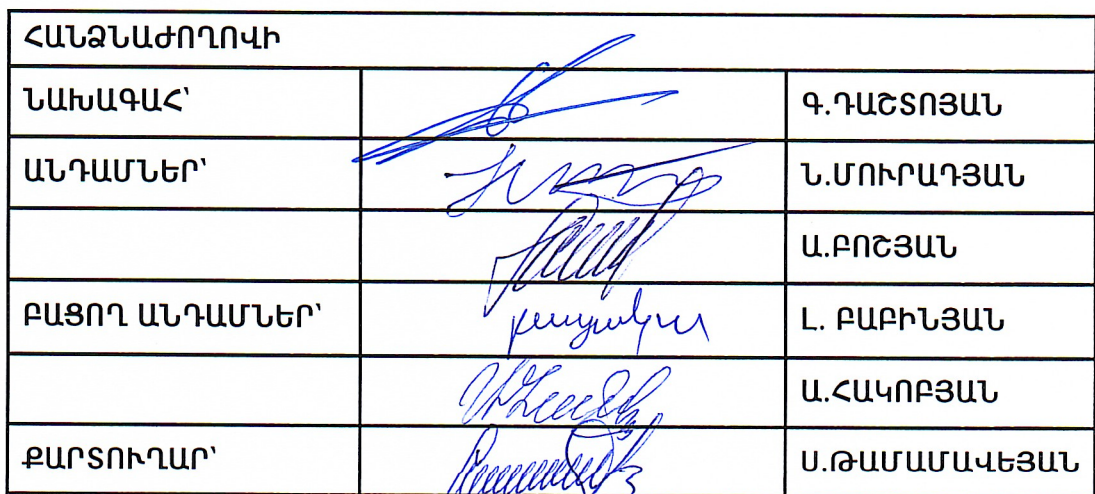 ՀԱՆՁՆԱԺՈՂՈՎԻ
ՆԱԽԱԳԱՀ՝ Գ.ԴԱՇՏՈՅԱՆ
ԱՆԴԱՄՆԵՐ՝ Ն.ՄՈՒՐԱԴՅԱՆ
Ա.ԲՈՇՅԱՆ
ԲԱՑՈՂ ԱՆԴԱՄՆԵՐ՝ Լ. ԲԱԲԻՆՅԱՆ
Ա.ՀԱԿՈԲՅԱՆ
ՔԱՐՏՈՒՂԱՐ՝ Ս.ԹԱՄԱՄԱՎԵՅԱՆ